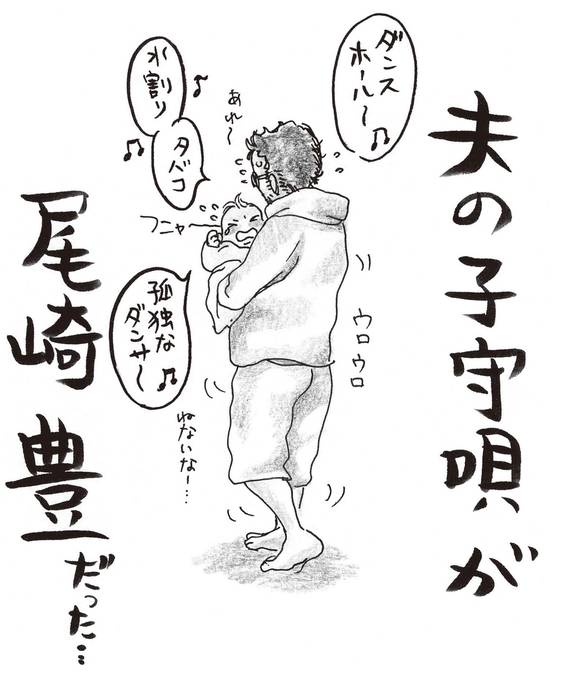 夫の子守唄が
ダンス
ホール〜♪
あれ〜
水割り♪
タバコ♪
フニャー
孤独な
ダンサ〜♪
ウロウロ
ねないなー…
尾崎豊だった…